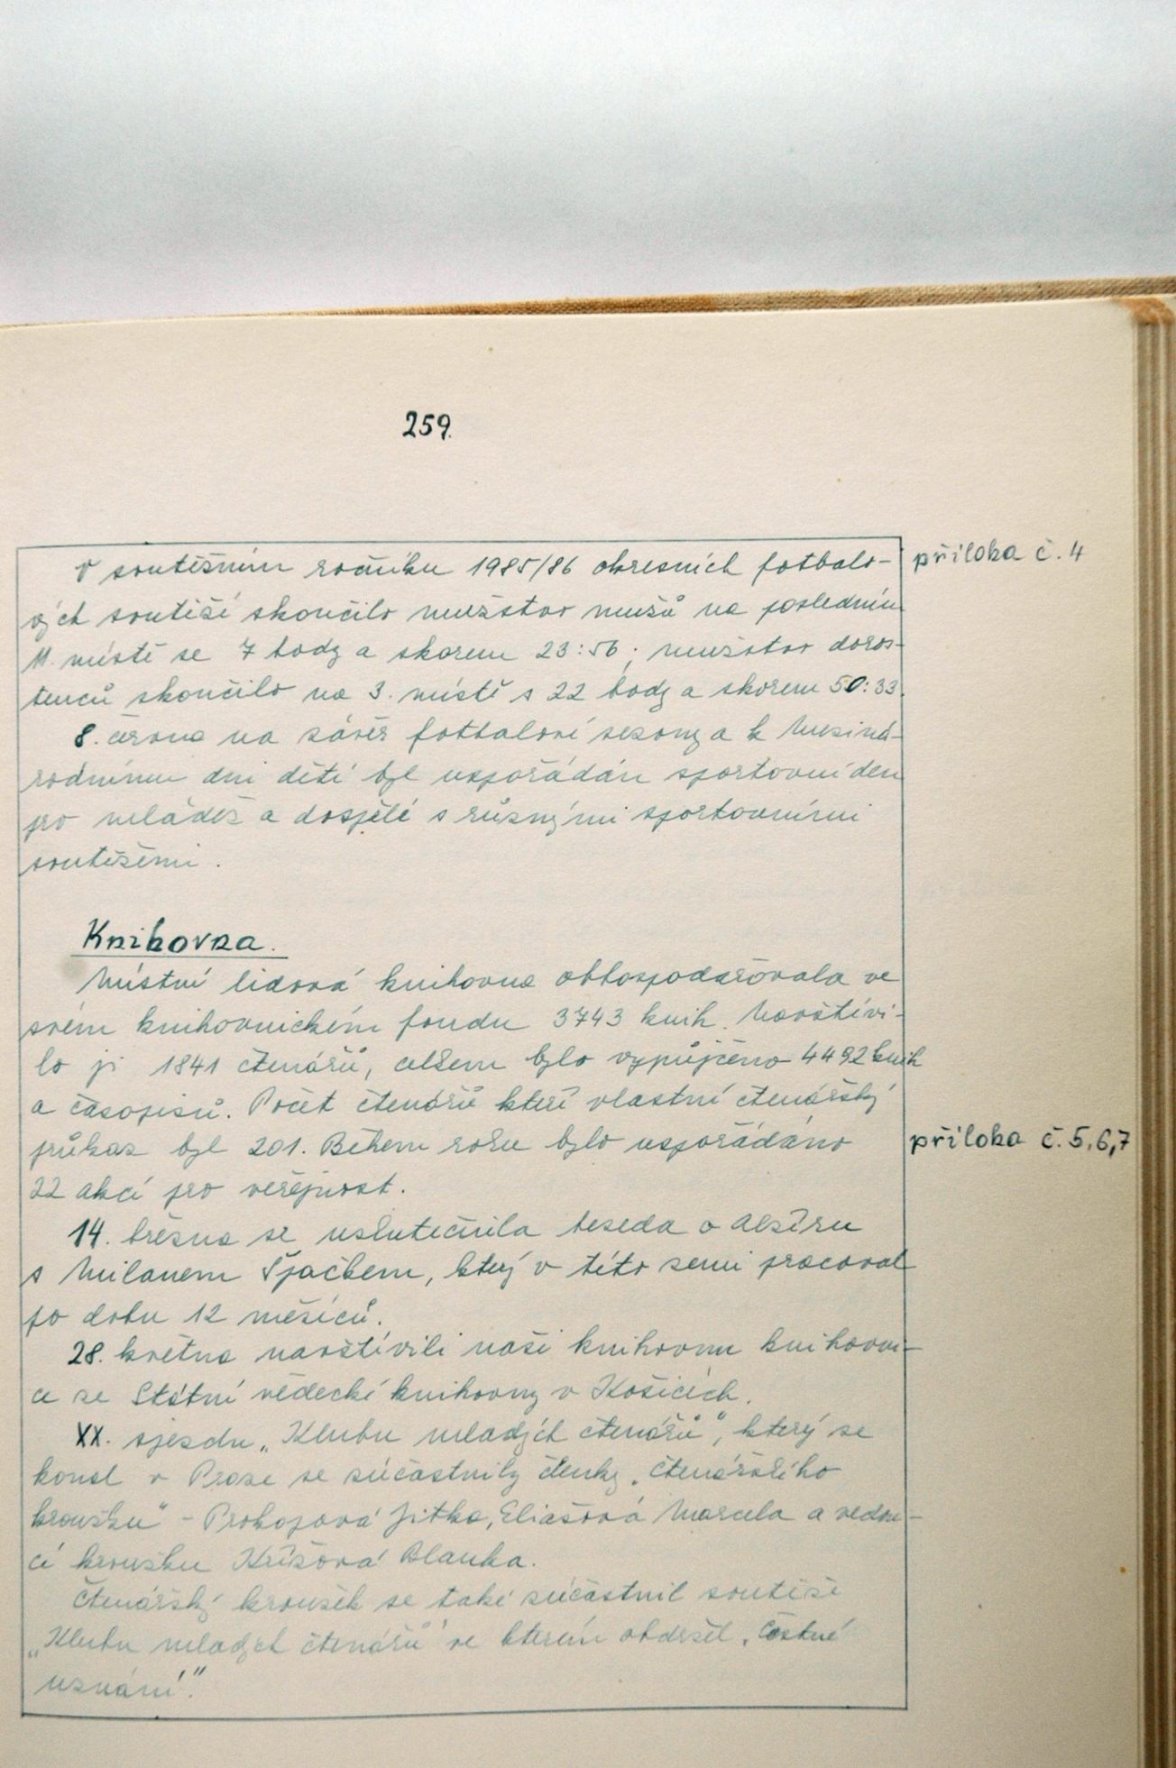 259.
V soutěžním ročníku 1985/86 okresních fotbalo-
příloha č. 4
vých soutěží skončilo mužstvo mužů na posledním
11. místě se 7 body a skorem 23:56; mužstvo doros-
tenců skončilo na 3. místě s 22 body a skorem 50:33.
8. června na závěr fotbalové sezony a k Meziná-
rodnímu dni dětí byl uspořádán sportovní den
pro mládež a dospělé s různými sportovními
soutěžemi.
Knihovna.
Místní lidová knihovna obhospodařovala ve
svém knihovnickém fondu 3743 knih. Navštívi-
lo ji 1841 čtenářů, celkem bylo vypůjčeno 4492 knih
a časopisů. Počet čtenářů kteří vlastní čtenářský
průkaz byl 201. Během roku bylo uspořádáno
příloha č. 5, 6, 7
22 akcí pro veřejnost.
14. března se uskutečnila beseda o Alžíru
s Milanem Špačkem, který v této zemi pracoval
po dobu 12 měsíců.
28. května navštívili naši knihovnu knihovní-
ci ze Státní vědecké knihovny v Košicích.
XX. sjezdu „Klubu mladých čtenářů", který se
konal v Praze se zúčastnily členky „čtenářského
kroužku" - Prokopová Jitka, Eliašová Marcela a vedou-
cí kroužku Křížová Blanka.
Čtenářský kroužek se také zúčastnil soutěže
„Klubu mladých čtenářů" ve kterém obdržel „Čestné
uznání".